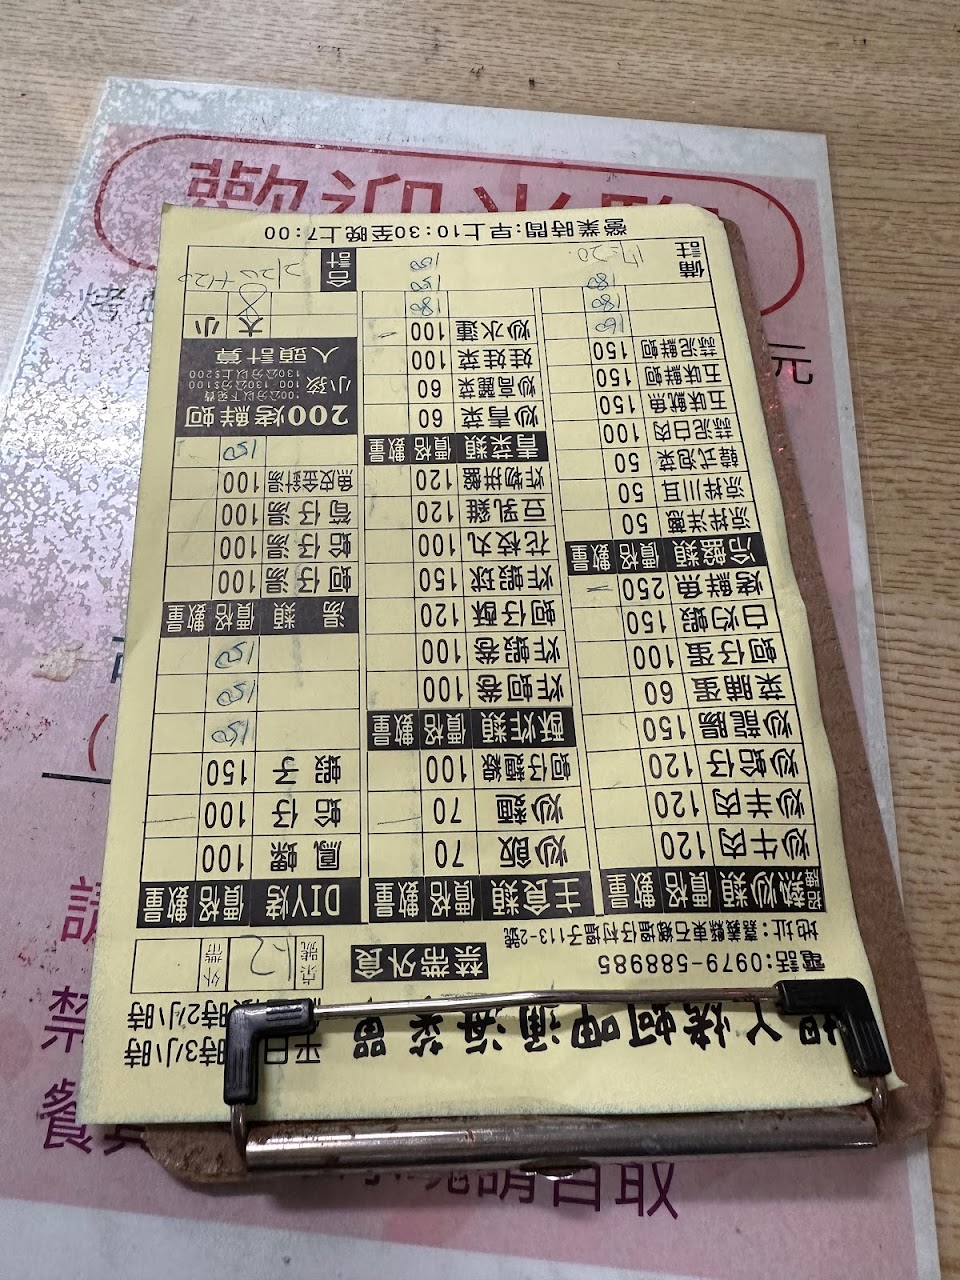 平日限時3小時
時2小時
電話:0979-588985
地址:嘉義縣東石鄉塭仔村塭子113-2號
禁帶外食
桌號
外帶
招牌熱炒類 價格 數量
炒牛肉 120
炒羊肉 120
炒蛤仔 120
炒龍腸 150
菜脯蛋 60
蚵仔蛋 100
白灼蝦 150
烤鮮魚 250
冷盤類 價格 數量
涼拌洋蔥 50
涼拌川耳 50
韓式泡菜 50
蒜泥白肉 100
五味魷魚 150
五味鮮蚵 150
蒜泥鮮蚵 150
160
180
80
備註
主食類 價格 數量
炒飯 70
炒麵 70
蚵仔麵線 100
酥炸類 價格 數量
炸蚵卷 100
炸蝦卷 100
蚵仔酥 120
炸蝦球 150
花枝丸 100
豆乳雞 120
炸物拼盤 120
青菜類 價格 數量
炒青菜 60
炒高麗菜 60
娃娃菜 100
炒水蓮 100
180
150
150
DIY烤 價格 數量
鳳螺 100
蛤仔 100
蝦子 150
150
150
150
湯類 價格 數量
蚵仔湯 100
蛤仔湯 100
筍仔湯 100
魚皮金針湯 100
150
200烤鮮蚵
小孩
100公分以下免費
100-130公分$100
130公分以上$200
人頭計算
大 小
8
合計
營業時間:早上10:30至晚上7:00
歡迎
元
請
禁
餐
請自取